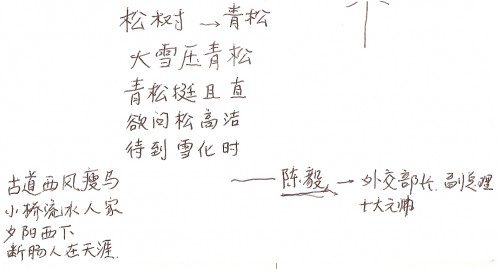 松树 → 青松
大雪压青松
青松挺且直
欲问松高洁
待到雪化时
—— 陈毅 → 外交部长.副总理
十大元帅
古道西风瘦马
小桥流水人家
夕阳西下
断肠人在天涯.